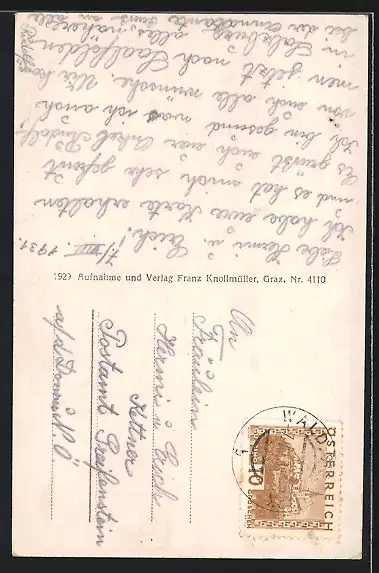 7/VIII. 1931.
Liebe Hermi u. Erich!
Ich habe eure Karte erhalten
und es hat mich sehr gefreut
Es grüßt euch euer Onkel Rudolf
Ich bin gesund was ich auch
von euch alle wünsche. Wir
men jetzt nach Saalfelden
in Salzburg alles nähere
bei der
1929 Aufnahme und Verlag Franz Knollmüller, Graz. Nr. 4110
An
Fräulein
Hermi u Erich
Kettner
Postamt Greifenstein
a/d Donau N.Ö
WALD
ÖSTERREICH
10
GROSCHEN